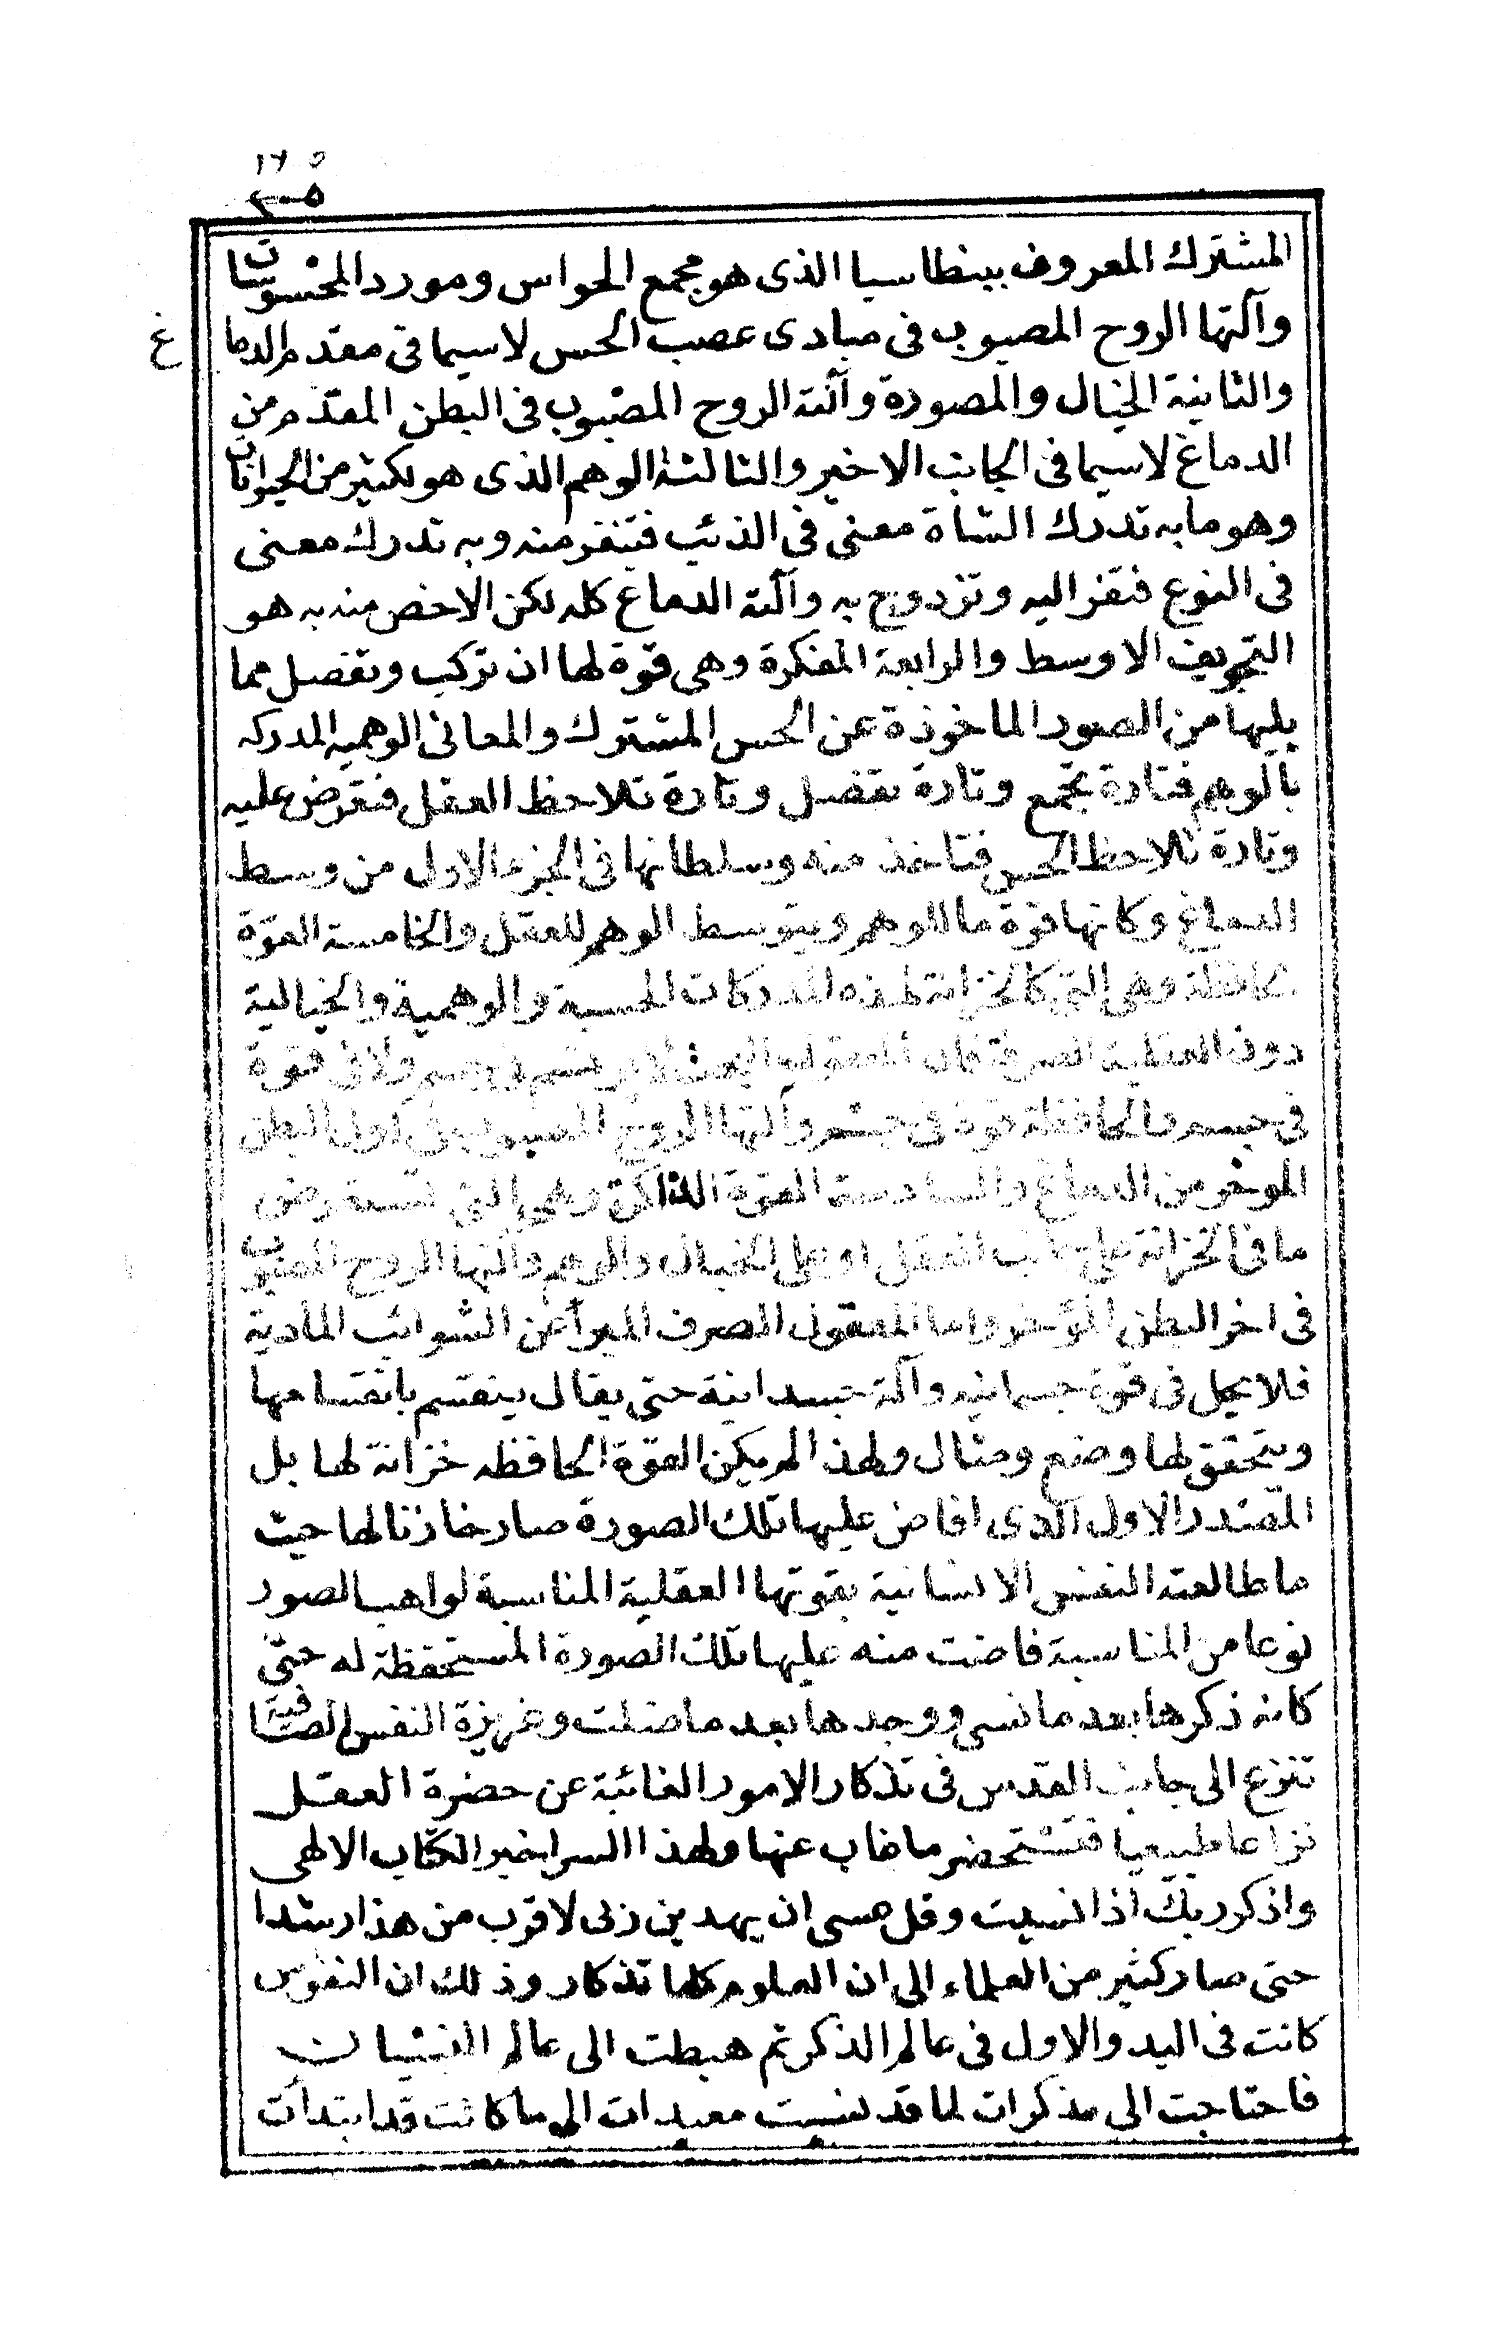 ١٢٥
٢٠٥
المشترك المعروف ببنطاسيا الذى هو مجمع الحواس ومورد المحسوسات
وآلتها الروح المصبوب فى مبادى عصب الحس لاسيما فى مقدم الدماغ
والثانية الخيال والمصورة وآلته الروح المصبوب فى البطن المقدم من
الدماغ لاسيما فى الجانب الاخير والثالثة الوهم الذى هو لكثير من الحيوانات
وهو ما به تدرك الشاة معنى فى الذئب فتنفر منه وبه تدرك معنى
فى النوع فتقز اليه وتزدوج به وآلته الدماغ كله لكن الاخص منه به هو
التجويف الاوسط والرابعة المفكرة وهى قوة لها ان تركب وتفصل مما
يليها من الصور الماخوذة عن الحس المشترك والمعانى الوهميه المدركه
بالوهم فتارة تجمع وتارة تفصل وتارة تلاحظ العقل فتعرض عليه
وتارة تلاحظ الحس فتاخذ منه وسلطانها فى الجزء الاول من وسط
الدماغ وكانها قوة ما للوهم وبتوسط الوهم للعقل والخامسة القوة
الحافظة وهى التى كالخزانة لهذه المدركات الحسية والوهمية والخيالية
دون العقلية الصرفة فان المعقول البحت لا يرتسم فى جسم ولا فى قوة
فى جسم والحافظة قوة فى جسم وآلتها الروح المصبوب فى اول البطن
الموخر من الدماغ والسادسة القوة الذاكرة وهى التى تستعرض
ما فى الخزانة على جانب العقل او على الخيال والوهم وآلتها الروح المصبوب
فى اخر البطن المؤخر واما المعقول الصرف المبرأ عن الشوائب المادية
فلا يحل فى قوة جسمانيه وآلة جسدانية حتى يقال ينقسم بانقسامها
ويتحقق لها وضع ومثال ولهذا لم يكن القوة الحافظه خزانة لها بل
المصدر الاول الذى افاض عليها تلك الصورة صار خازنا لها حيث
ما طالعته النفس الانسانية بقوتها العقلية المناسبة لواهب الصور
نوعا من المناسبة فاضت منه عليها تلك الصورة المستحفظة له حتى
كانه ذكرها بعد ما نسى ووجدها بعد ما ضلت وغريزة النفس الصافية
تنزع الى جانب القدس فى تذكار الامور الغائبة عن حضرة العقل
نزاعا طبيعيا فتستحضر ما غاب عنها ولهذا السر اخبر الكتاب الالهى
واذكر ربك اذا نسيت وقل عسى ان يهدين ربى لاقرب من هذا رشدا
حتى صار كثير من العلماء الى ان العلوم كلها تذكار وذلك ان النفوس
كانت فى البدو الاول فى عالم الذكر ثم هبطت الى عالم النسيان
فاحتاجت الى مذكرات لما قد نسيت معيدات الى ما كانت قد ابتدأت